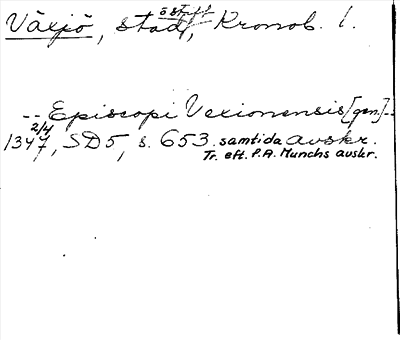 Växjö, stad, östift, Kronob. l.
-- Episcopi Vexionensis [gen.] --
2/4
1347, SD 5, s. 653. samtida avskr.
Tr. eft. P.A. Munchs avskr.